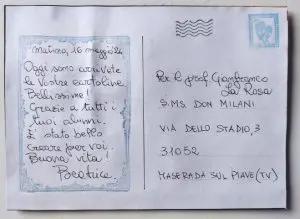 Matino, 16 maggio '24
Oggi sono arrivate
le vostre cartoline.
Bellissime!
Grazie a tutti i
tuoi alunni.
E' stato bello
creare per voi.
Buona vita!
Beatrice.
Per il prof Gianfranco
La Rosa
S.MS. DON MILANI
VIA DELLO STADIO, 3
31052
MASERADA SUL PIAVE (TV)